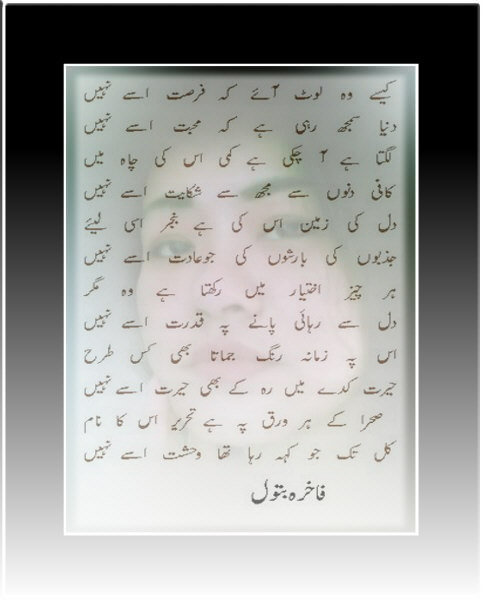 کیسے وہ لوٹ آئے کہ فرصت اسے نہیں
دنیا سمجھ رہی ہے کہ محبت اسے نہیں
لگتا ہے آ چکی ہے کمی اس کی چاہ میں
کافی دنوں سے مجھ سے شکایت اسے نہیں
دل کی زمین اس کی ہے بنجر اسی لیئے
جذبوں کی بارشوں کی جو عادت اسے نہیں
ہر چیز اختیار میں رکھتا ہے وہ مگر
دل سے رہائی پانے پہ قدرت اسے نہیں
اس پہ زمانہ رنگ جماتا بھی کس طرح
حیرت کدے میں رہ کے بھی حیرت اسے نہیں
صحرا کے ہر ورق پہ ہے تحریر اس کا نام
کل تک جو کہہ رہا تھا وحشت اسے نہیں
فاخرہ بتول